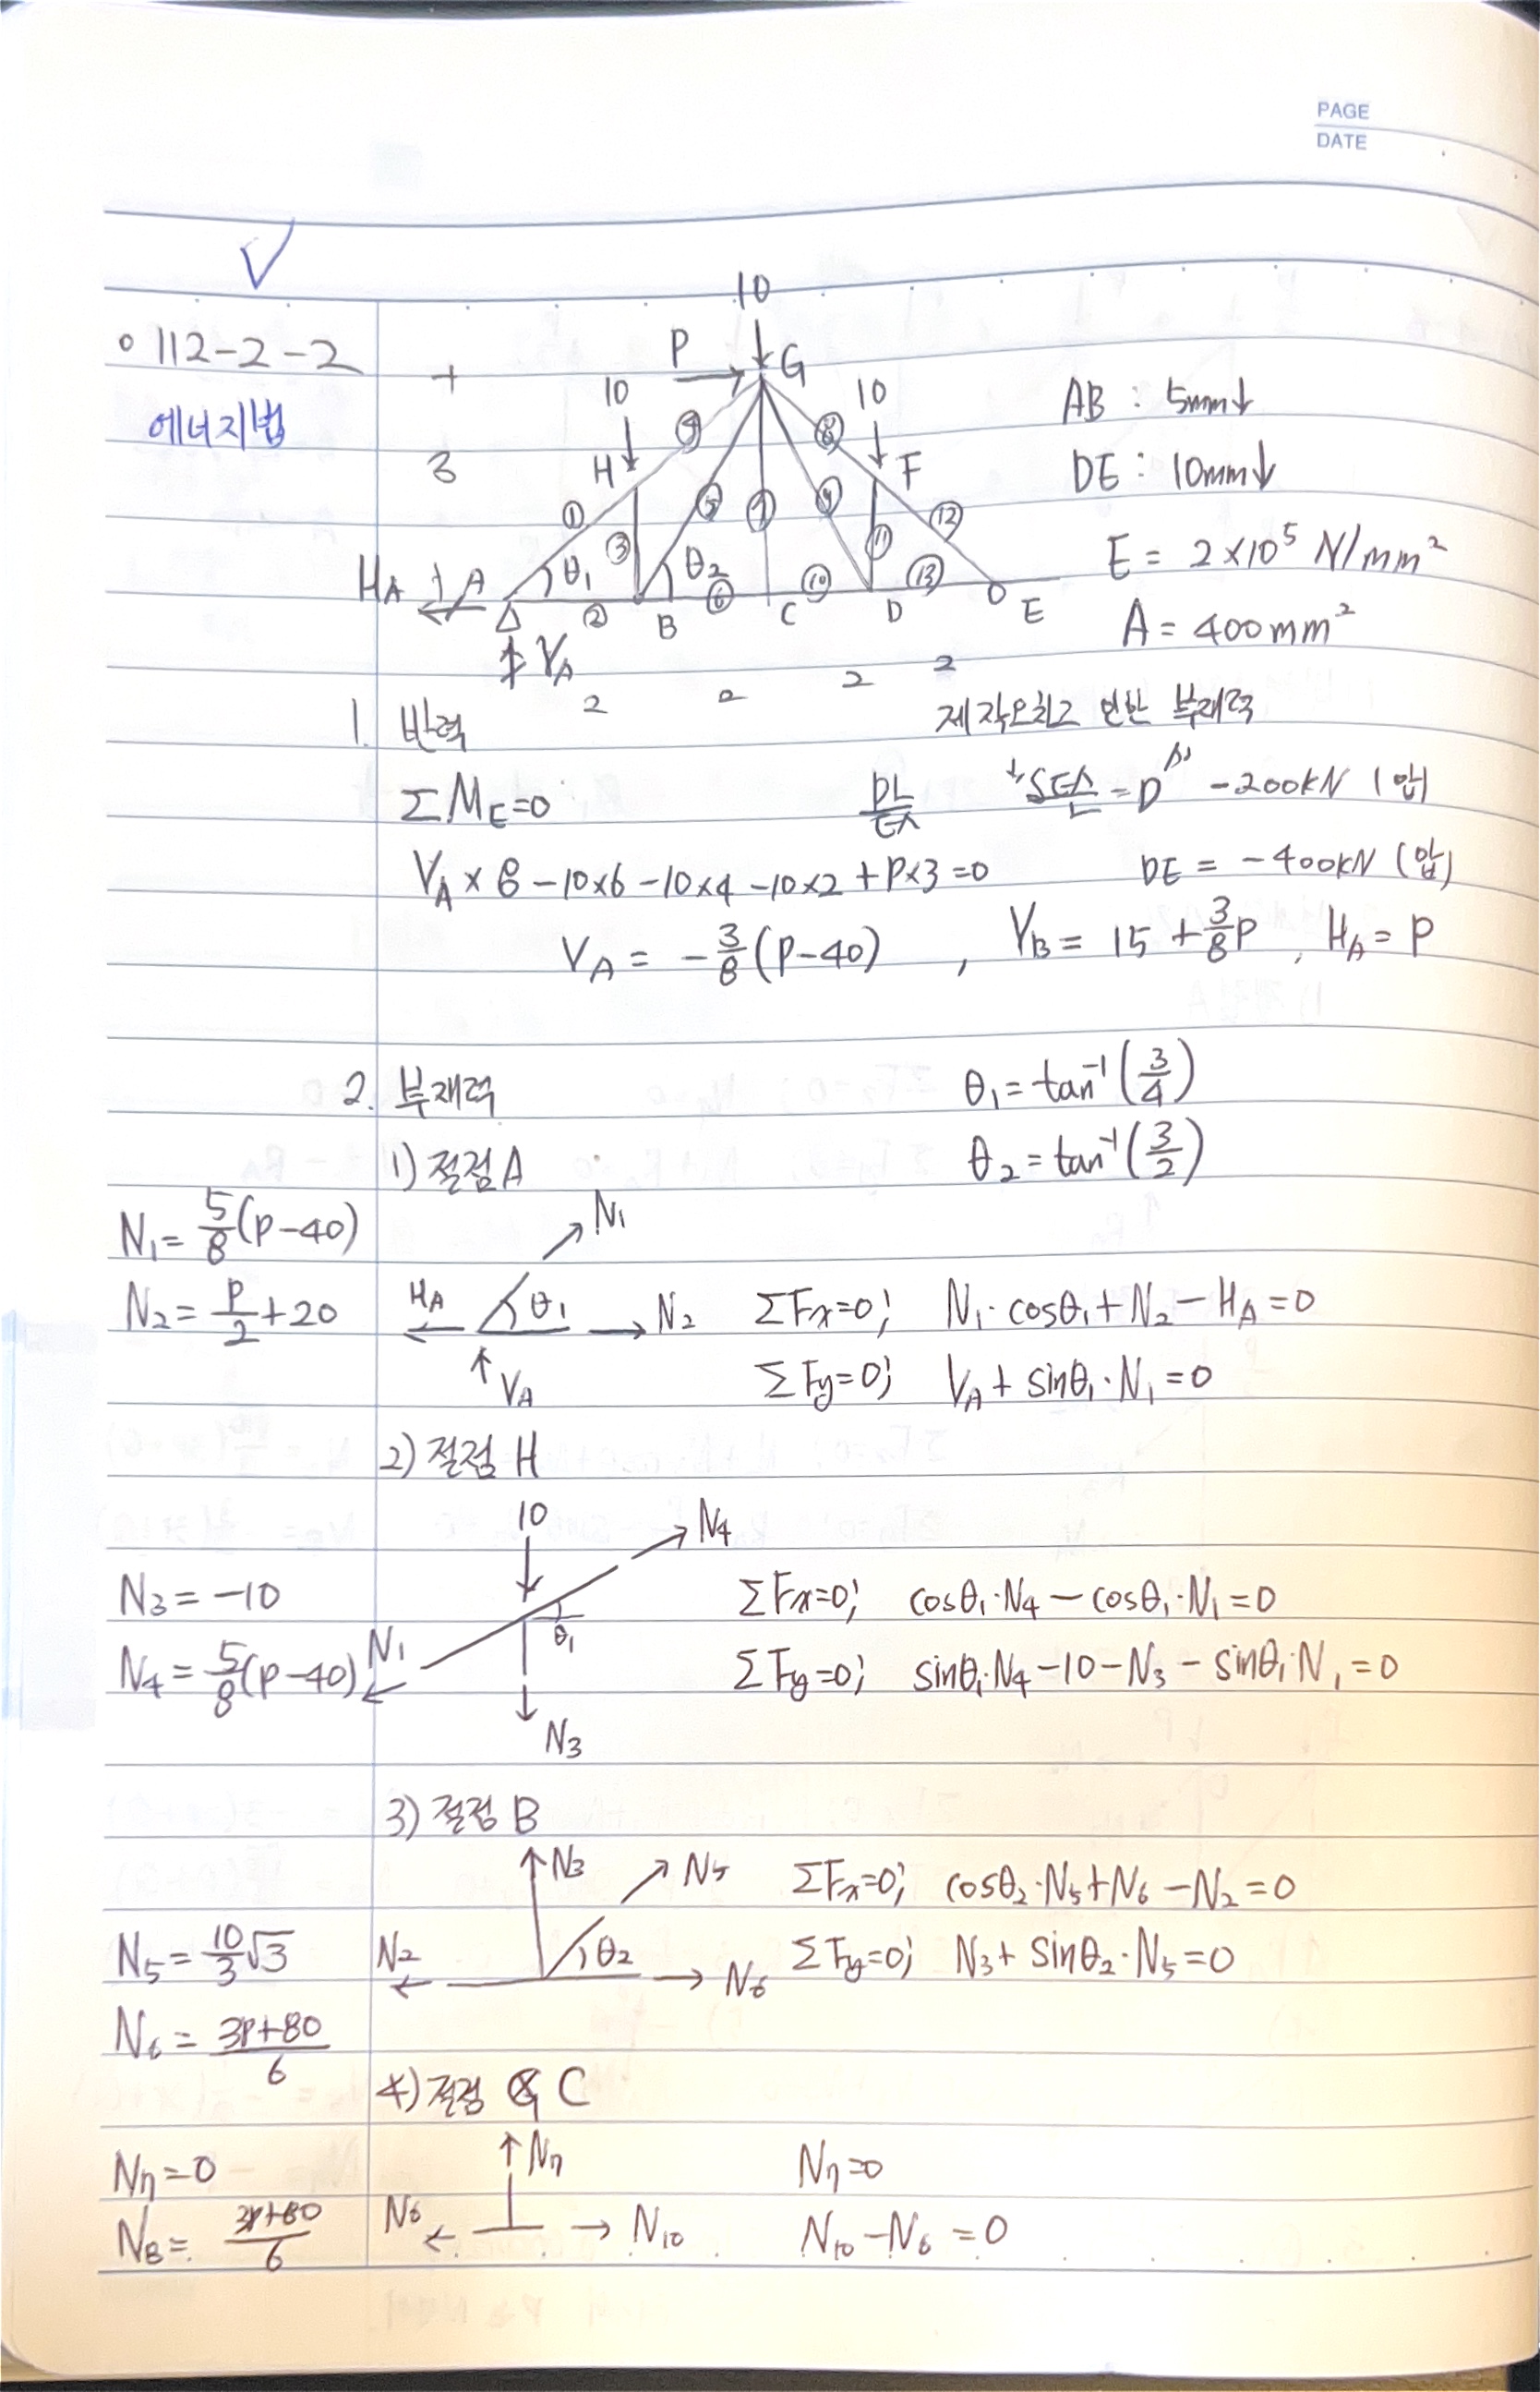 PAGE
DATE
112-2-2
에너지법
10
P
G
10
10
H
F
3
① ② ③ ④ ⑤ ⑥ ⑦ ⑧ ⑨ ⑩ ⑪ ⑫ ⑬
θ₁ θ₂
H_A A B C D E
V_A
2 2 2 2
AB : 5mm↓
DE : 10mm↓
E = 2×10⁵ N/mm²
A = 400mm²
1. 반력
제작오차로 인한 부재력
ΣM_E=0
-200kN (압)
V_A × 8 - 10×6 - 10×4 - 10×2 + P×3 = 0
DE = -400kN (압)
V_A = -3/8(P-40) , V_B = 15 + 3/8P , H_A = P
2. 부재력
θ₁ = tan⁻¹(3/4)
1) 절점A
θ₂ = tan⁻¹(3/2)
N₁ = 5/8(P-40)
N₁
N₂ = P/2+20
H_A θ₁ N₂ ΣFx=0; N₁·cosθ₁+N₂-H_A=0
V_A ΣFy=0; V_A+sinθ₁·N₁=0
2) 절점 H
10 N₄
N₃ = -10
θ₁ ΣFx=0; cosθ₁·N₄-cosθ₁·N₁=0
N₄ = 5/8(P-40)
N₁ ΣFy=0; sinθ₁·N₄-10-N₃-sinθ₁·N₁=0
N₃
3) 절점 B
N₃ N₅ ΣFx=0; cosθ₂·N₅+N₆-N₂=0
N₅ = 10/3√3
N₂ θ₂ N₆ ΣFy=0; N₃+sinθ₂·N₅=0
N₆ = 3P+80/6
4) 절점 C
N₇=0
N₇ N₇=0
N₈ = 3P+80/6
N₆ N₁₀ N₁₀-N₆=0